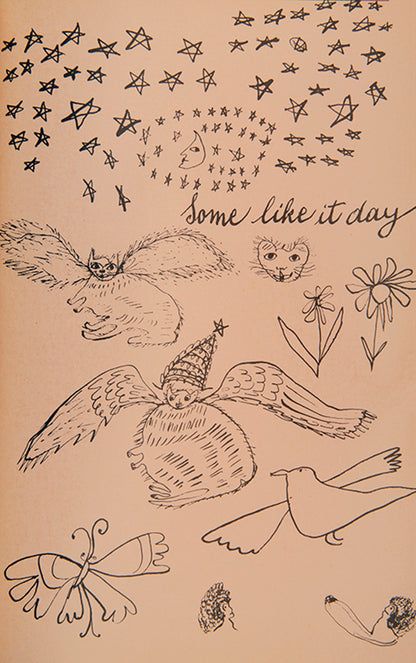 Some like it day